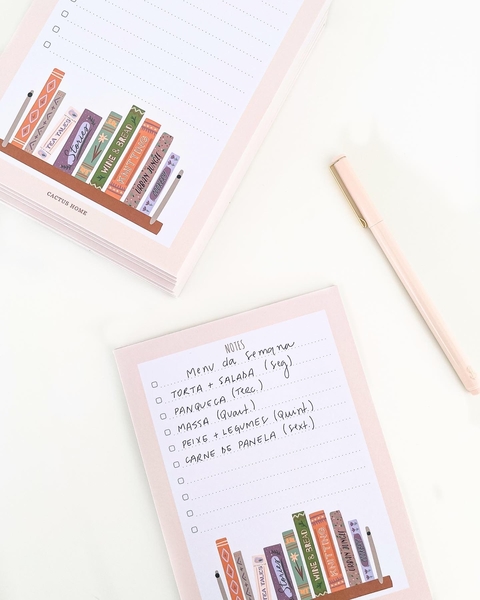 TEA TALES
Stories
WINE & BREAD
CACTUS HOME
NOTES
Menu da Semana
TORTA + SALADA (Seg)
PANQUECA (Terc.)
MASSA (Quart.)
PEIXE + LEGUMES (Quint.)
CARNE DE PANELA (Sext.)
TEA TALES
Stories
WINE & BREAD
KNITTING